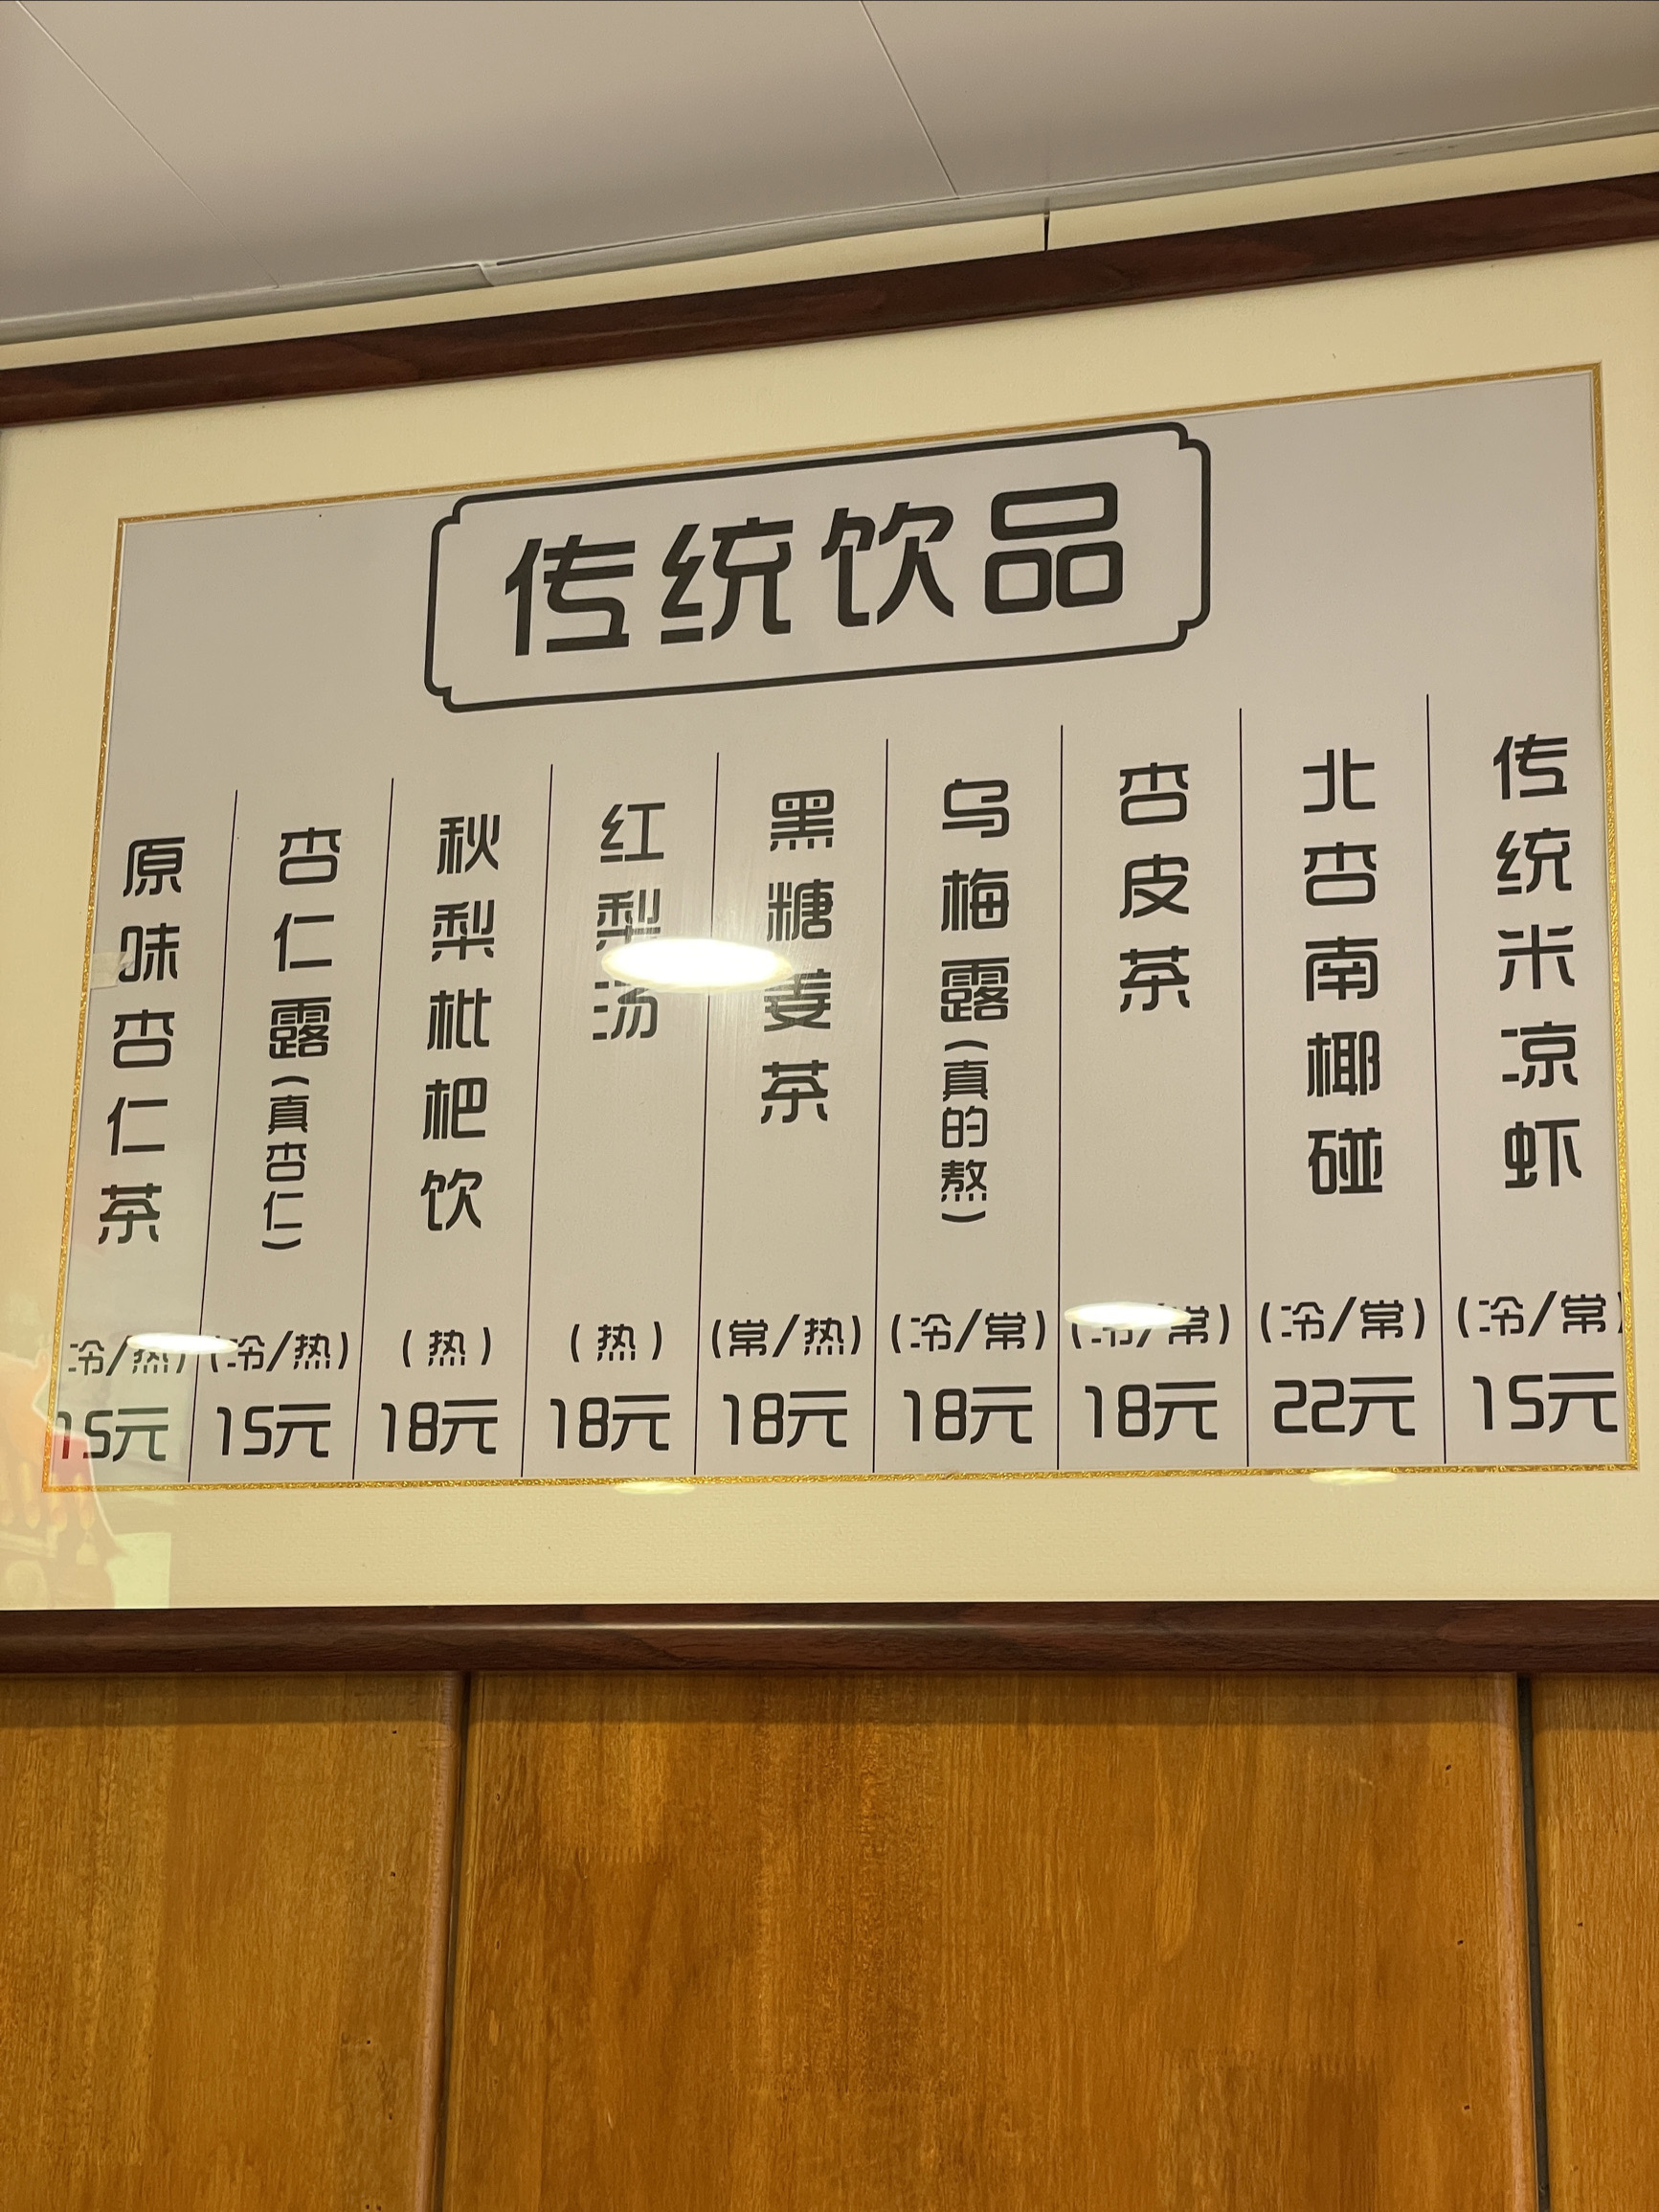 传统饮品
原味杏仁茶
(冷/热)
15元
杏仁露(真杏仁)
(冷/热)
15元
秋梨枇杷饮
(热)
18元
红梨汤
(热)
18元
黑糖姜茶
(常/热)
18元
乌梅露(真的熬)
(冷/常)
18元
杏皮茶
(冷/常)
18元
北杏南椰碰
(冷/常)
22元
传统米凉虾
(冷/常)
15元